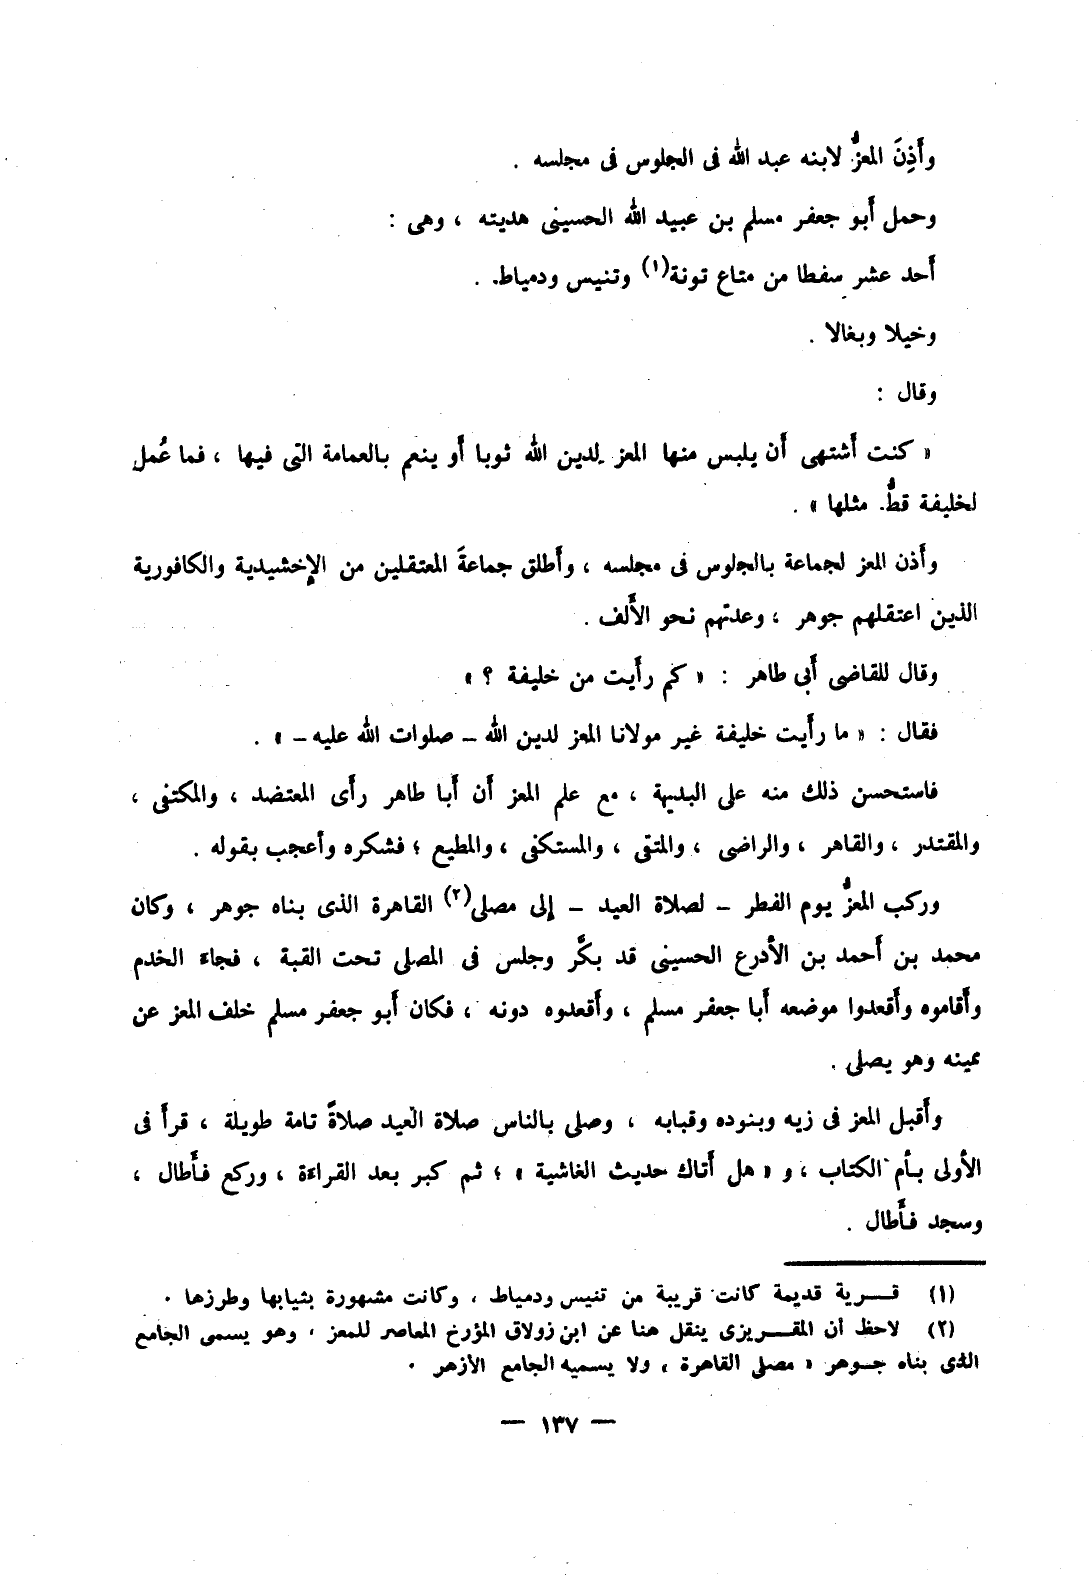 وأَذِنَ المعزُّ لابنه عبد الله فى الجلوس فى مجلسه .
وحمل أَبو جعفر مسلم بن عبيد الله الحسينى هديته ، وهى :
أَحد عشر سفطا من متاع تونة(١) وتنيس ودمياط .
وخيلا وبغالا .
وقال :
« كنت أَشتهى أَن يلبس منها المعز لدين الله ثوبا أَو ينعم بالعمامة التى فيها ، فما عُمل
لخليفة قطُّ مثلها » .
وأَذن المعز لجماعة بالجلوس فى مجلسه ، وأَطلق جماعةً المعتقلين من الإخشيدية والكافورية
الذين اعتقلهم جوهر ، وعدتهم نحو الأَلف .
وقال للقاضى أَبى طاهر : « كم رأَيت من خليفة ؟ »
فقال : « ما رأَيت خليفة غير مولانا المعز لدين الله – صلوات الله عليه – » .
فاستحسن ذلك منه على البديهة ، مع علم المعز أَن أَبا طاهر رأَى المعتضد ، والمكتفى ،
والمقتدر ، والقاهر ، والراضى ، والمتقى ، والمستكفى ، والمطيع ؛ فشكره وأعجب بقوله .
وركب المعزُّ يوم الفطر – لصلاة العيد – إلى مصلى(٢) القاهرة الذى بناه جوهر ، وكان
محمد بن أَحمد بن الأَدرع الحسينى قد بكَّر وجلس فى المصلى تحت القبة ، فجاء الخدم
وأَقاموه وأَقعدوا موضعه أَبا جعفر مسلم ، وأَقعدوه دونه ، فكان أَبو جعفر مسلم خلف المعز عن
يمينه وهو يصلى .
وأَقبل المعز فى زيه وبنوده وقبابه ، وصلى بالناس صلاة العيد صلاةً تامة طويلة ، قرأَ فى
الأولى بأم الكتاب ، و « هل أَتاك حديث الغاشية » ؛ ثم كبر بعد القراءة ، وركع فأَطال ،
وسجد فأَطال .
(١) قرية قديمة كانت قريبة من تنيس ودمياط ، وكانت مشهورة بثيابها وطرزها .
(٢) لاحظ أن المقريزى ينقل هنا عن ابن زولاق المؤرخ المعاصر للمعز ، وهو يسمى الجامع
الذى بناه جوهر « مصلى القاهرة ، ولا يسميه الجامع الأزهر .
— ١٣٧ —